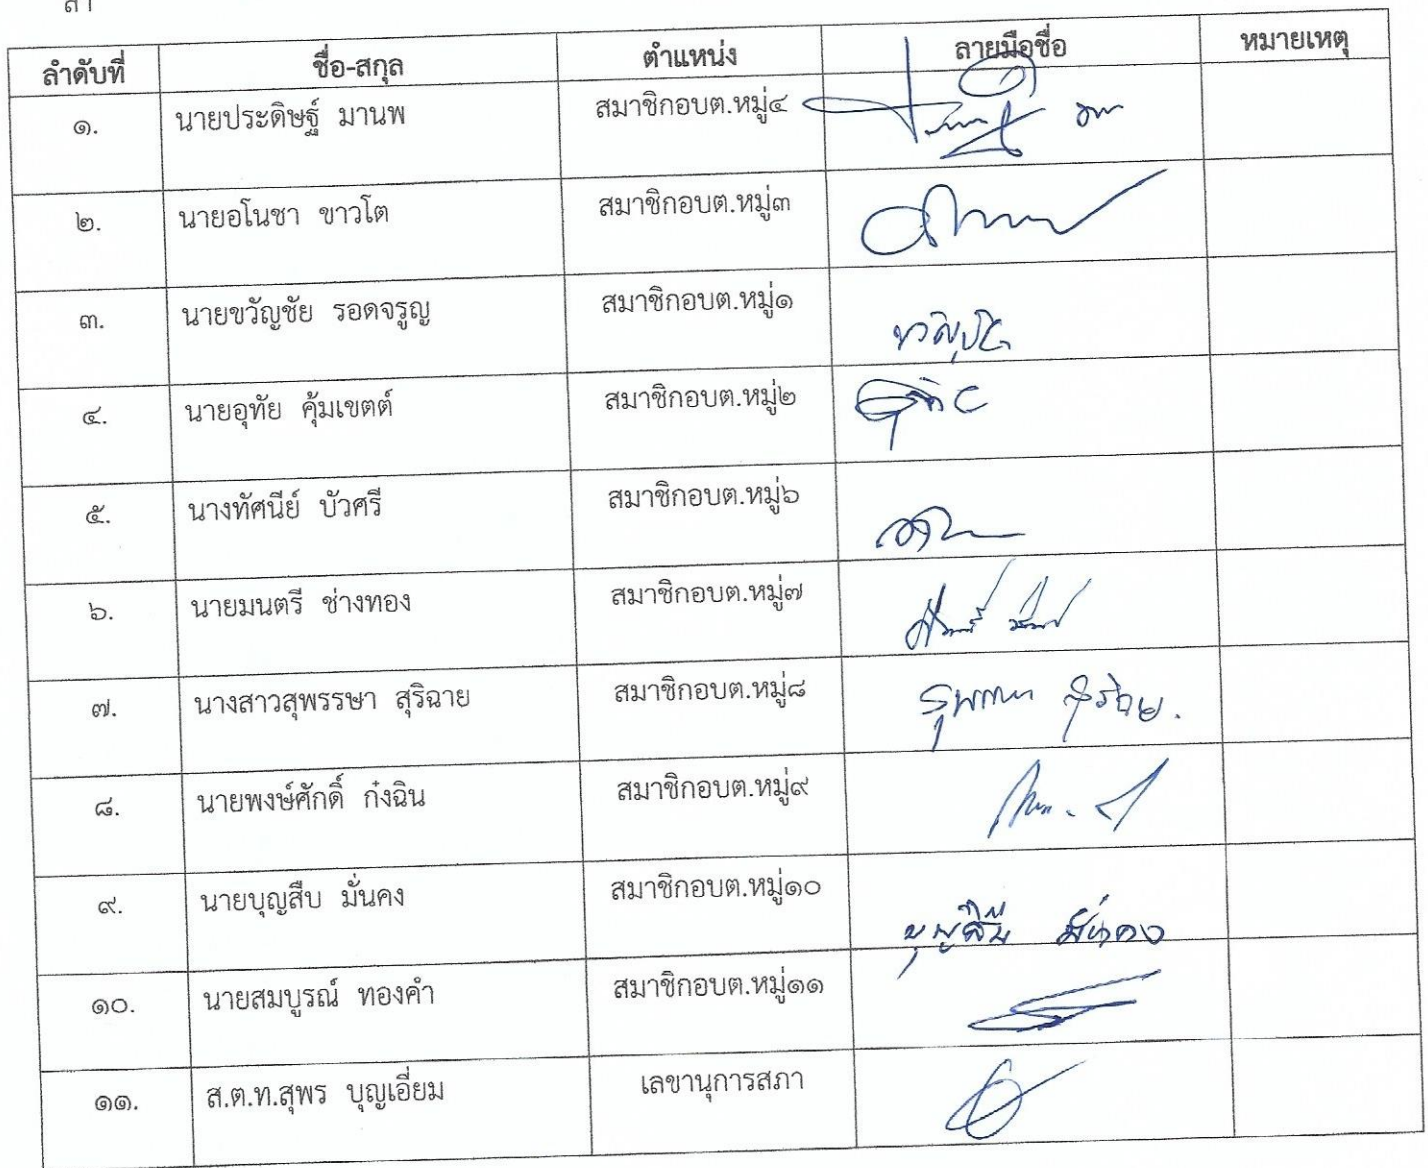 ลำดับที่ ชื่อ-สกุล ตำแหน่ง ลายมือชื่อ หมายเหตุ
๑. นายประดิษฐ์ มานพ สมาชิกอบต.หมู่๔
๒. นายอโนชา ขาวโต สมาชิกอบต.หมู่๓
๓. นายขวัญชัย รอดจรูญ สมาชิกอบต.หมู่๑ ขวัญชัย
๔. นายอุทัย คุ้มเขตต์ สมาชิกอบต.หมู่๒
๕. นางทัศนีย์ บัวศรี สมาชิกอบต.หมู่๖
๖. นายมนตรี ช่างทอง สมาชิกอบต.หมู่๗
๗. นางสาวสุพรรษา สุริฉาย สมาชิกอบต.หมู่๘
๘. นายพงษ์ศักดิ์ ก๋งฉิน สมาชิกอบต.หมู่๙
๙. นายบุญสืบ มั่นคง สมาชิกอบต.หมู่๑๐ บุญสืบ มั่นคง
๑๐. นายสมบูรณ์ ทองคำ สมาชิกอบต.หมู่๑๑
๑๑. ส.ต.ท.สุพร บุญเอี่ยม เลขานุการสภา